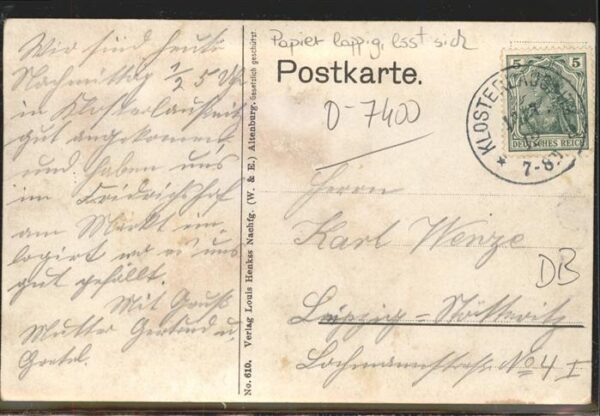 Papier lappig, löst sich
Postkarte.
D-7400
KLOSTERLAUSNITZ
7-8
5 5
DEUTSCHES REICH
Wir sind heute
Nachmittag 1/2 5 Uhr
in Klosterlausnitz
gut angekommen
und haben uns
im Friedrichshof
am Markt ein-
logirt wo es uns
gut gefällt.
Mit Gruß
Mutter Gertrud u.
Gretel.
No. 610. Verlag Louis Henkss Nachfg. (W. & E.) Altenburg. Gesetzlich geschützt.
Herrn
Karl Wenze
DB
Leipzig-Stötteritz
Lochmannstraße No 4 I